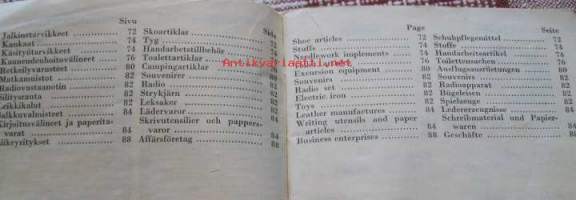 Sivu
Jalkinetarvikkeet 72
Kankaat 74
Käsityötarvikkeet 74
Kauneudenhoitovälineet 76
Retkeilyvarusteet 80
Matkamuistot 82
Radiovastaanotin 82
Silitysrauta 82
Leikkikalut 82
Nahkavalmisteet 84
Kirjoitusvälineet ja paperita-
varat 84
Liikeyritykset 88
Sida
Skoartiklar 72
Tyg 74
Handarbetstillbehör 74
Toalettartiklar 76
Campingartiklar 80
Souvenirer 82
Radio 82
Strykjärn 82
Leksaker 82
Lädervaror 84
Skrivutensilier och pappers-
varor 84
Affärsföretag 88
Page
Shoe articles 72
Stuffs 74
Needlework implements 74
Excursion equipment 80
Souvenirs 82
Radio set 82
Electric iron 82
Toys 82
Leather manufactures 84
Writing utensils and paper
articles 84
Business enterprises 88
Seite
Schuhpflegemittel 72
Stoffe 74
Handarbeitsartikel 74
Toilettensachen 76
Ausflugsausrüstungen 80
Souvenirs 82
Radioapparat 82
Bügeleisen 82
Spielzeuge 82
Ledererzeugnisse 84
Schreibmaterial und Papier-
waren 84
Geschäfte 88